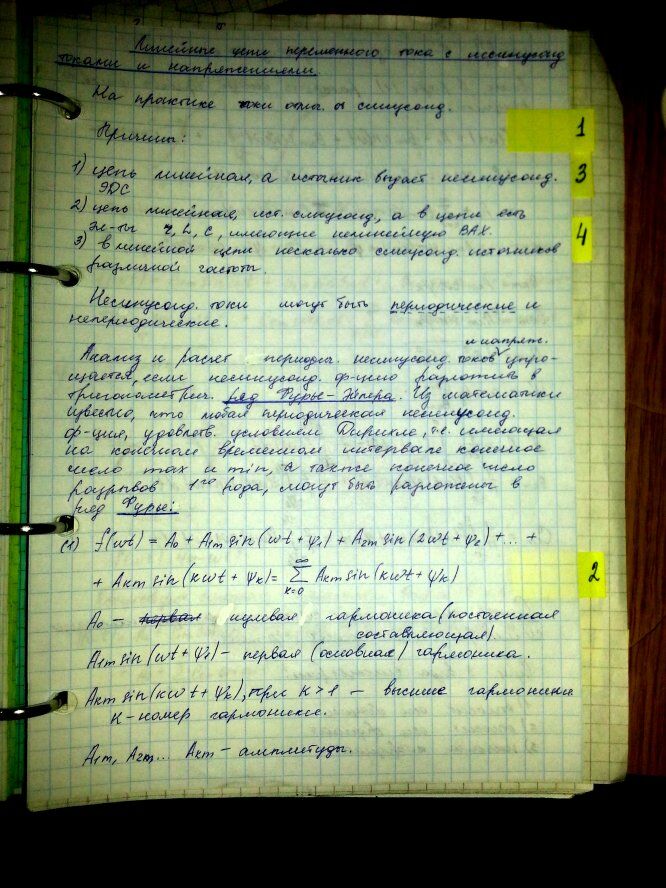 Линейные цепи переменного тока с несинусоид.
токами и напряжениями.
На практике токи отлич. от синусоид.
Причины:
1
1) цепь линейная, а источник выдает несинусоид.
ЭДС
3
2) цепь линейная, ист. синусоид, а в цепи есть
эл-ты r, L, C, имеющие нелинейную ВАХ.
4
3) в линейной цепи несколько синусоид. источников
различной частоты.
Несинусоид. токи могут быть периодические и
непериодические.
и напряж.
Анализ и расчет периодич. несинусоид. токов упро-
щается, если несинусоид. ф-цию разложить в
тригонометрич. ряд Фурье-Эйлера. Из математики
известно, что любая периодическая несинусоид.
ф-ция, удовлетв. условиям Дирихле, т.е. имеющая
на конечном временном интервале конечное
число max и min, а также конечное число
разрывов 1го рода, могут быть разложены в
ряд Фурье:
(1) f(ωt) = A₀ + A₁m sin(ωt + ψ₁) + A₂m sin(2ωt + ψ₂) + ... +
+ Aкm sin(кωt + ψк) = ∑ к=0 ∞ Aкm sin(кωt + ψк)
2
A₀ – первая нулевая гармоника (постоянная
составляющая).
A₁m sin(ωt + ψ₁) – первая (основная) гармоника.
Aкm sin(кωt + ψк), при К > 1 – высшие гармоники
К – номер гармоники.
A₁m, A₂m ... Aкm – амплитуды.